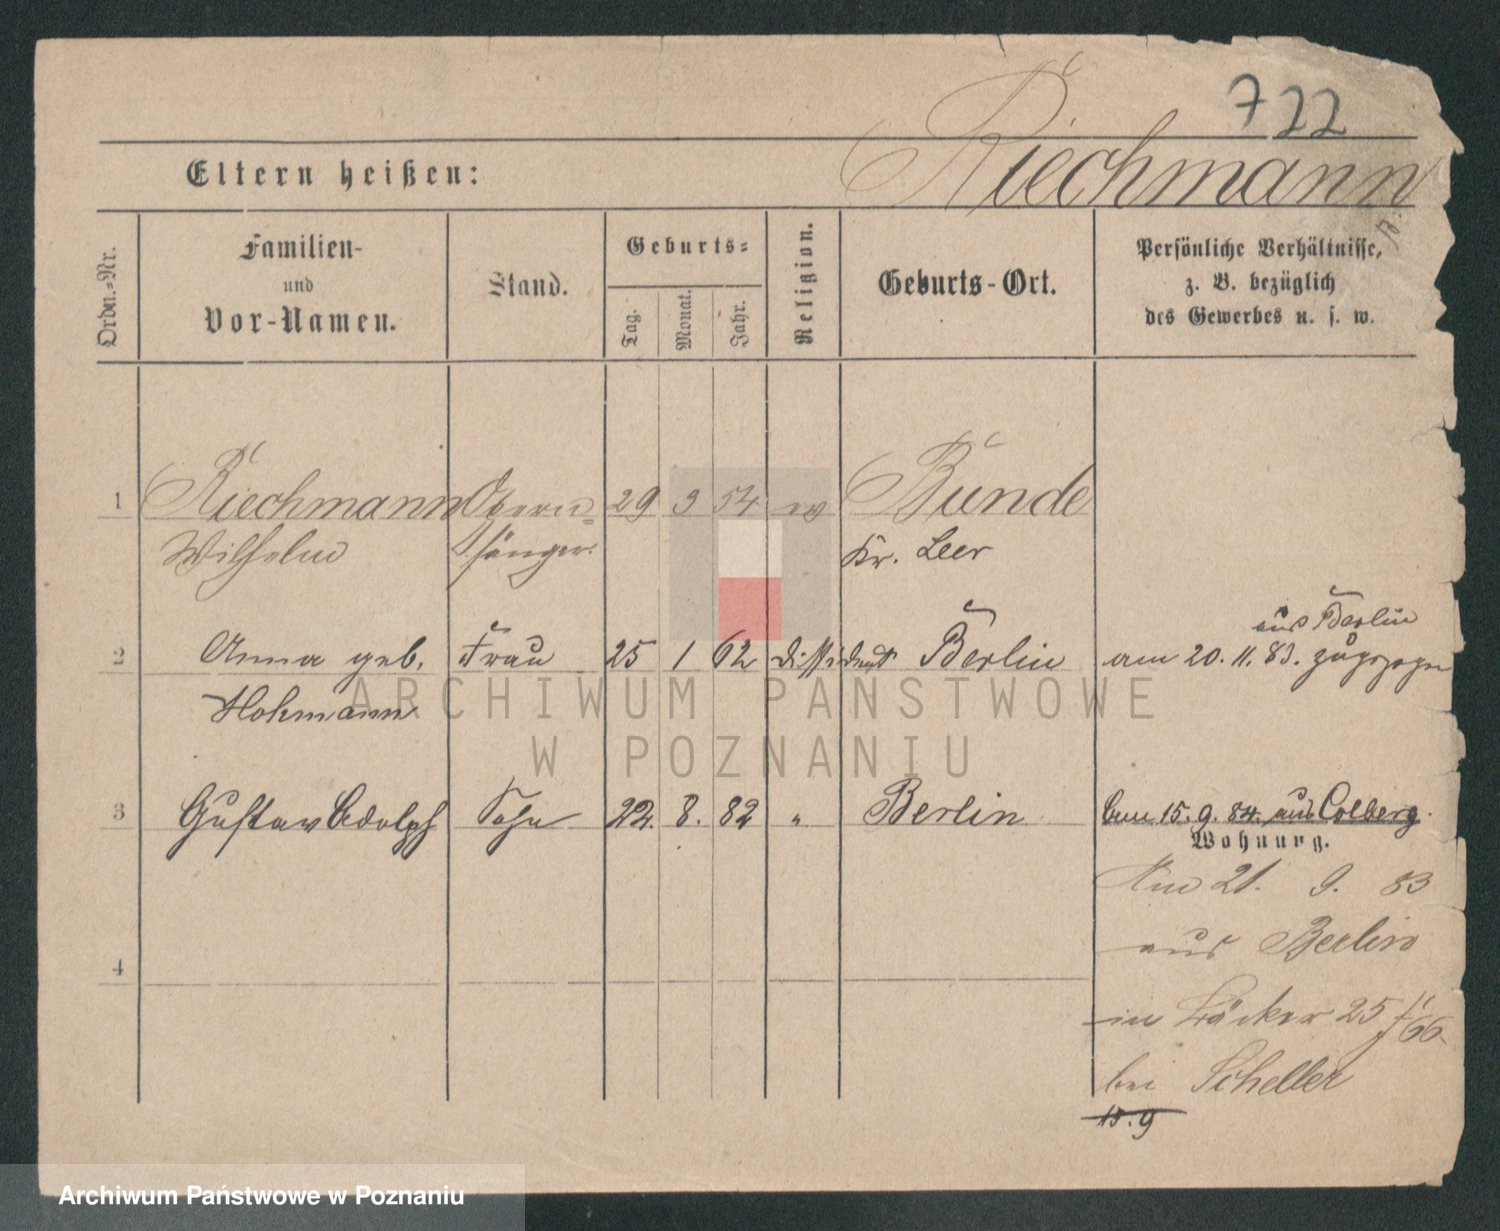 722
Riechmann
Eltern heißen:
Ordn.-Nr.
Familien-
und
Vor-Namen.
Stand.
Geburts-
Tag.
Monat.
Jahr.
Religion.
Geburts-Ort.
Persönliche Verhältnisse,
z. B. bezüglich
des Gewerbes u. s. w.
1 Riechmann Opern- 29 3 54 ev Bunde
Wilhelm sänger. Kr. Leer
aus Berlin
2 Anna geb. Frau 25 1 62 dissident Berlin am 20. 11. 83. zugezogen
Hohmann
3 Gustav Adolph Sohn 22. 8. 82 " Berlin am 15. 9. 84. aus Colberg.
Wohnung.
Am 21. 9. 83
aus Berlin
4
in Bäcker 25 /66
bei Scheller
15.9
ARCHIWUM PAŃSTWOWE
W POZNANIU
Archiwum Państwowe w Poznaniu